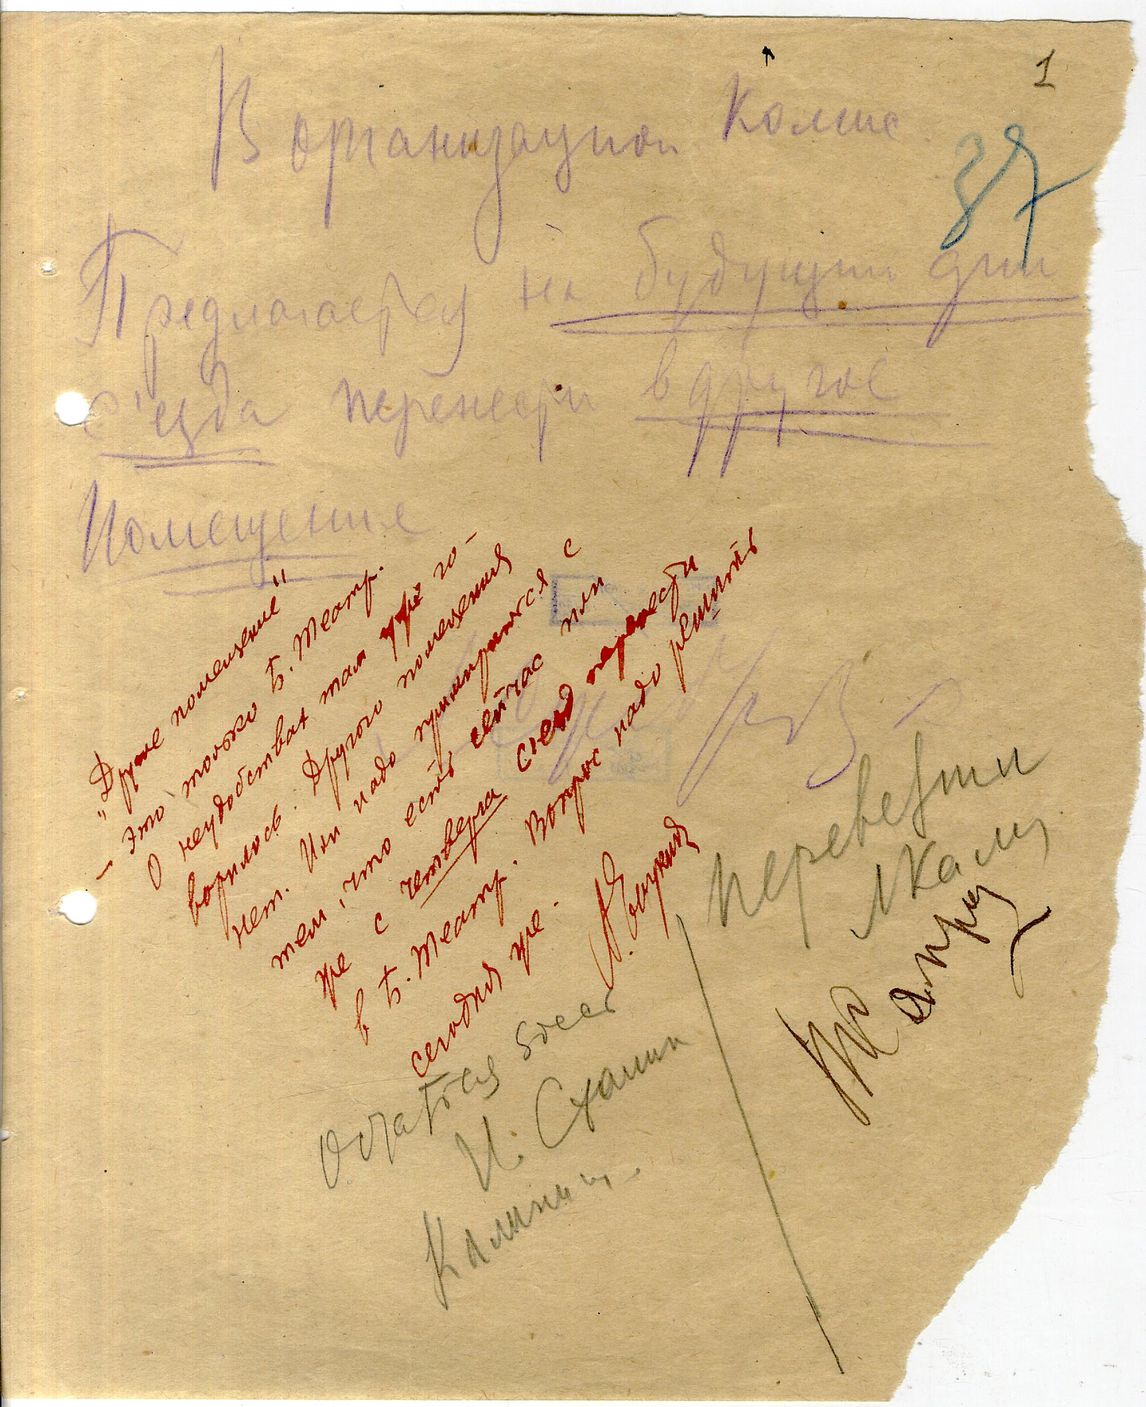 1
37
В организацион комис
Предлагается на будущии дни
с'езда перенести в другое
Помещения
"Другое помещение"
— Это только Б. Театр.
О неудобствах там уже го-
ворилось. Другого помещения
нет. Или надо примириться с
тем, что есть сейчас или
же с четверга съезд перенести
в Б. Театр. Вопрос надо решить
сегодня же.
А. Енукидзе
Остаться здесь
И. Сталин
Калинин
перевезти